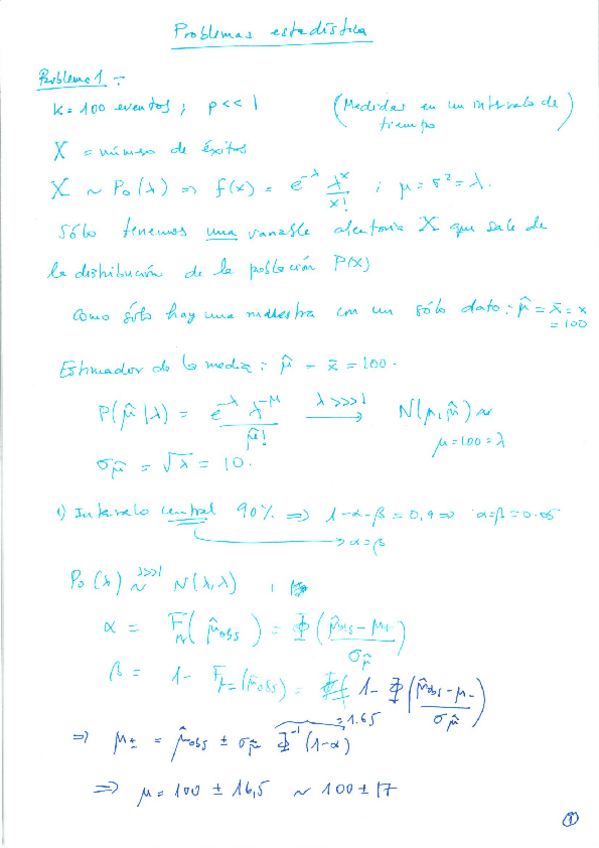 Problemas estadística
Problema 1 :-
k = 100 eventos ; p << 1 (Medidas en un intervalo de tiempo)
X = número de éxitos
X ~ Po(λ) ⇒ f(x) = e^{-λ} λ^x / x! ; μ = σ² = λ.
Sólo tenemos una variable aleatoria X que sale de
la distribución de la población P(x)
Como sólo hay una muestra con un sólo dato : μ̂ = x̄ = x = 100
Estimador de la media : μ̂ = x̄ = 100.
P(μ̂ | λ) = e^{-λ} λ^{-μ} / μ̂! λ>>>1 → N(μ, μ̂) ~
μ = 100 = λ
σ_μ̂ = √λ = 10.
1) Intervalo central 90% ⇒ 1-α-β = 0,9 ⇒ α=β=0.05
→ α=β
Po(λ) ~ >>>1 N(λ,λ) ;
α = F (μ̂obs) = Φ( (μ̂obs - μ+) / σ_μ̂ )
β = 1 - F_μ-(μ̂obs) = 1 - Φ( (μ̂obs - μ-) / σ_μ̂ )
=1.65
⇒ μ± = μ̂obs ± σ_μ̂ Φ^{-1}(1-α)
⇒ μ = 100 ± 16,5 ~ 100 ± 17
1